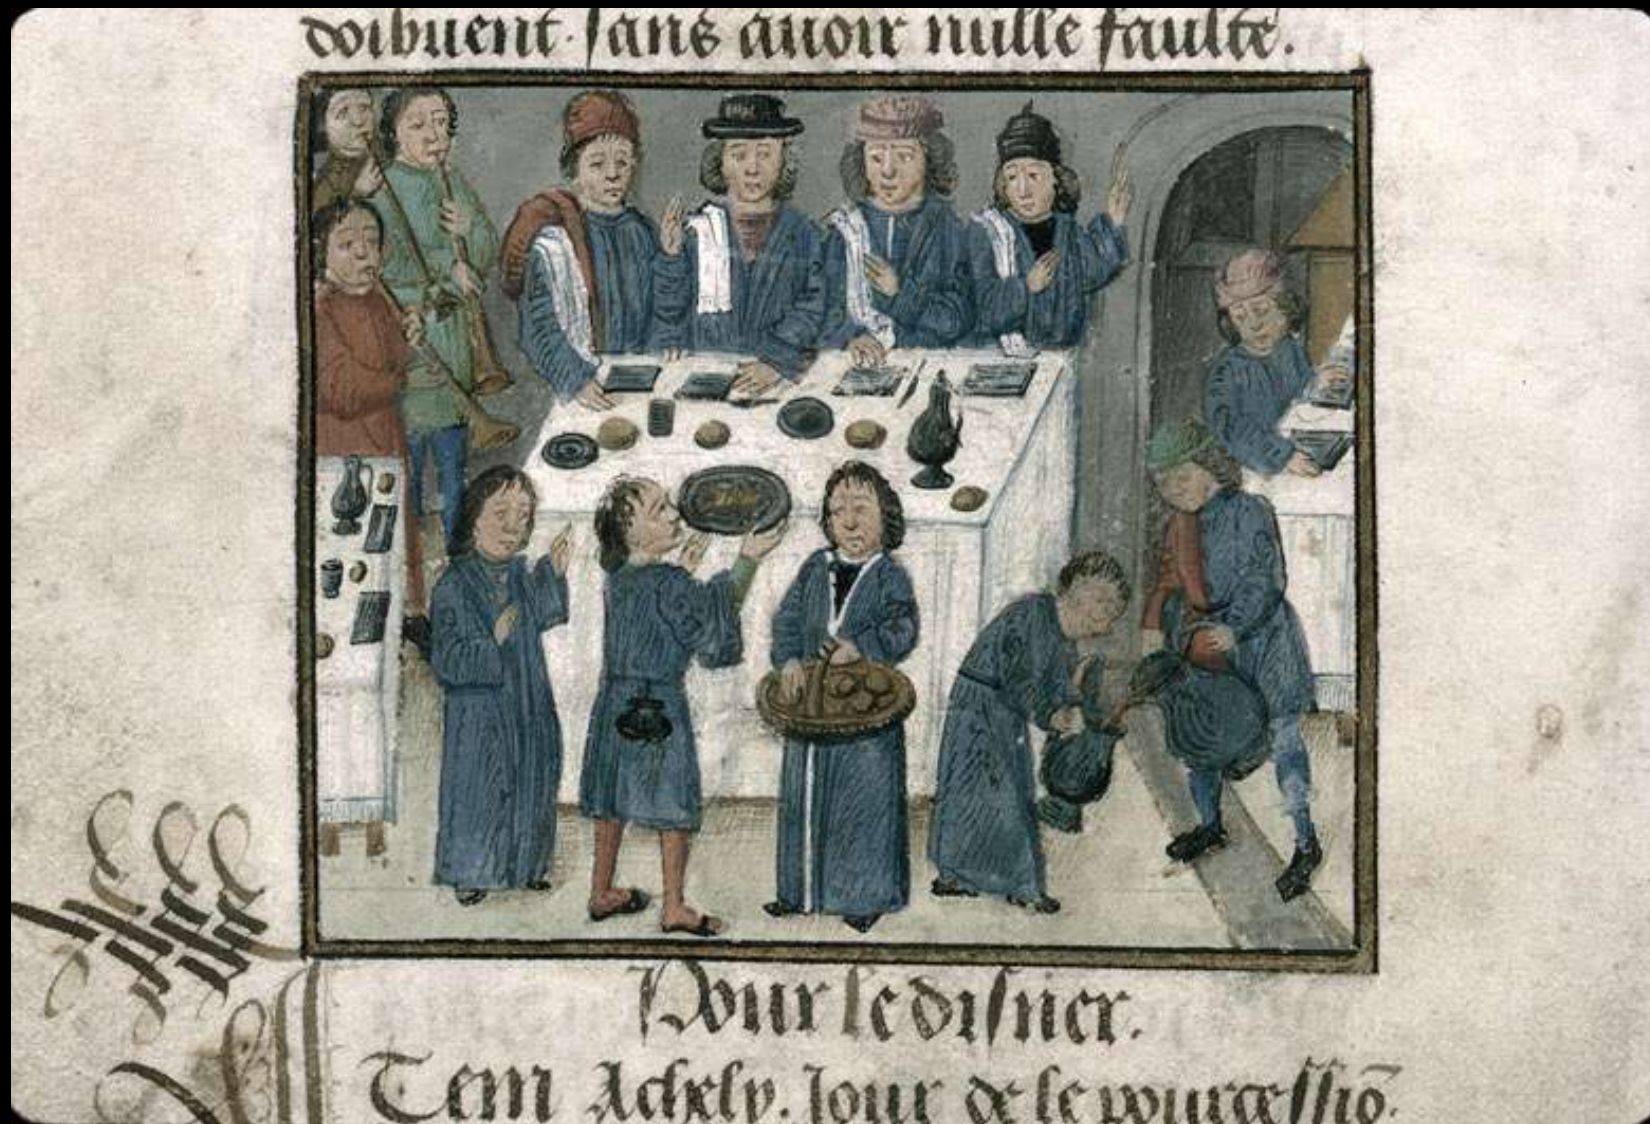 doibuent. sans auoir nulle faulte.
Pour le disner.
Item Achely. Jour de le pourcessiō.